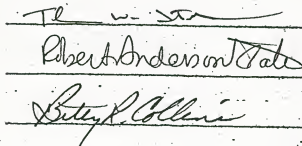 Robert Anderson Tate
Betty R. Collins